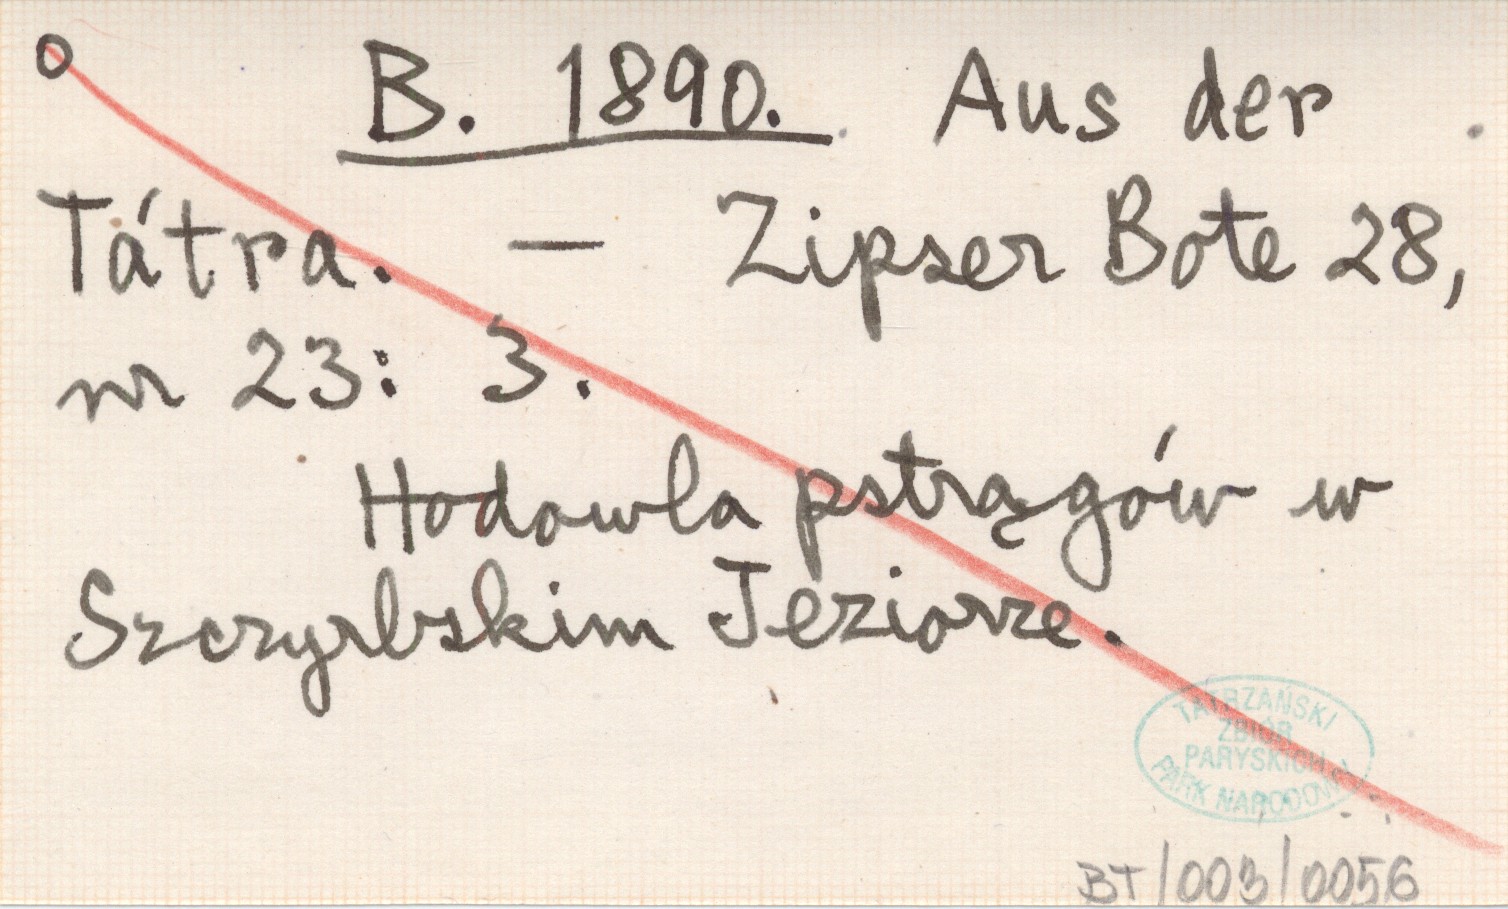 B. 1890. Aus der
Tátra. — Zipser Bote 28,
nr 23: 3.
Hodowla pstrągów w
Szczyrbskim Jeziorze.
TATRZAŃSKI
ZBIÓR
PARYSKICH
PARK NARODOWY
BT/003/0056